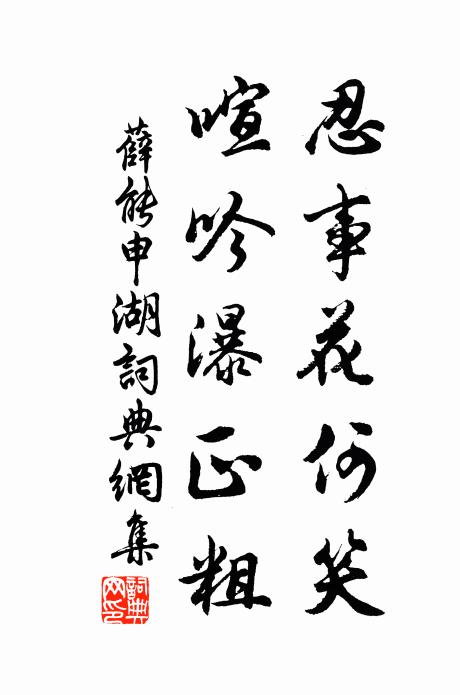 忍事花何笑
喧吟瀑正粗
薛能申湖詞典網集
詞典網印